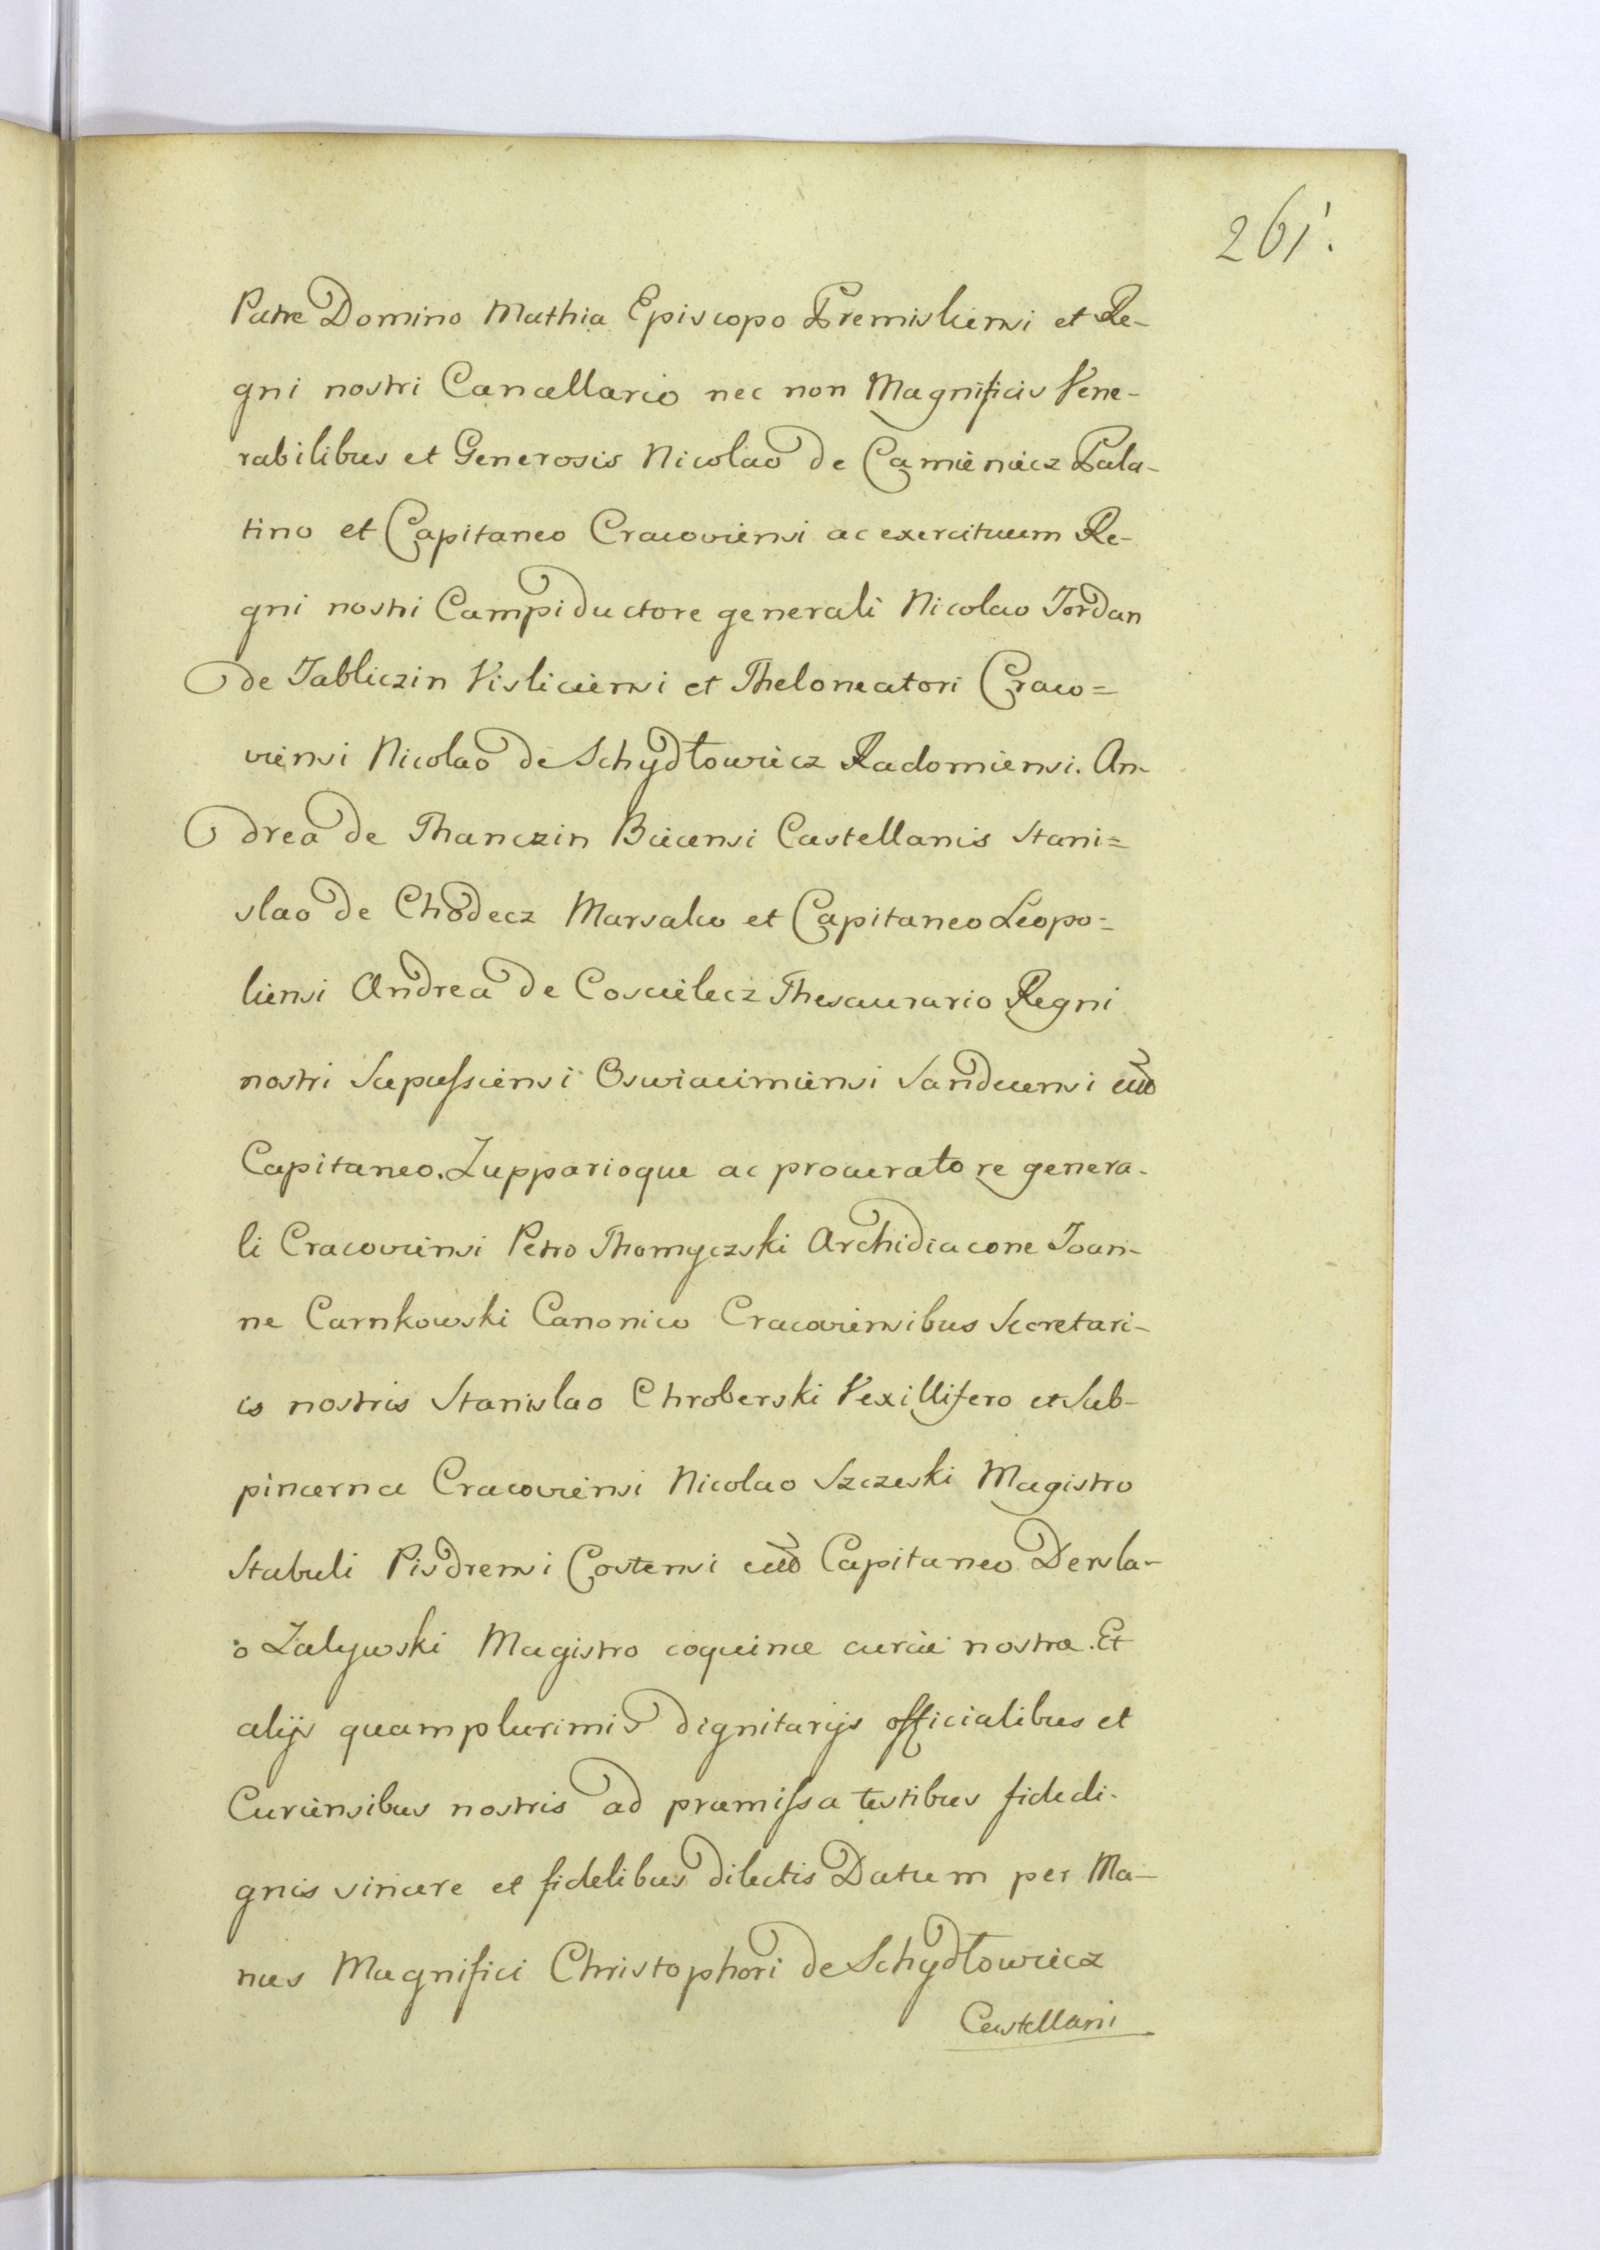 261.
Patre Domino Mathia Episcopo Premisliensi et Re-
gni nostri Cancellario nec non Magnificis Vene-
rabilibus et Generosis Nicolao de Camieniecz Pala-
tino et Capitaneo Cracoviensi ac exercituum Re-
gni nostri Campiductore generali Nicolao Jordan
de Zabliczin Visliciensi et Theloneatori Craco=
viensi Nicolao de Schydłowiecz Radomiensi. An-
drea de Thanczin Biecensi Castellanis Stani=
slao de Chodecz Marsalco et Capitaneo Leopo=
liensi Andrea de Coscielecz Thesaurario Regni
nostri Scepussiensi Oswiacimiensi Sandecensi
Capitaneo. Zupparioque ac procuratore genera-
li Cracoviensi Petro Thomyczski Archidiacone Joan-
ne Carnkowski Canonico Cracoviensibus Secretari-
is nostris Stanislao Chroberski Vexillifero et Sub-
pincerna Cracoviensi Nicolao Szczeski Magistro
Stabuli Pisdrensi Costensi Capitaneo Dersla-
o Zalywski Magistro coquinæ curiæ nostræ. Et
alijs quamplurimis dignitarijs officialibus et
Curiensibus nostris ad præmissa testibus fidedi-
gnis sincere et fidelibus dilectis Datum per Ma-
nus Magnifici Christophori de Schydłowiecz
Castellani